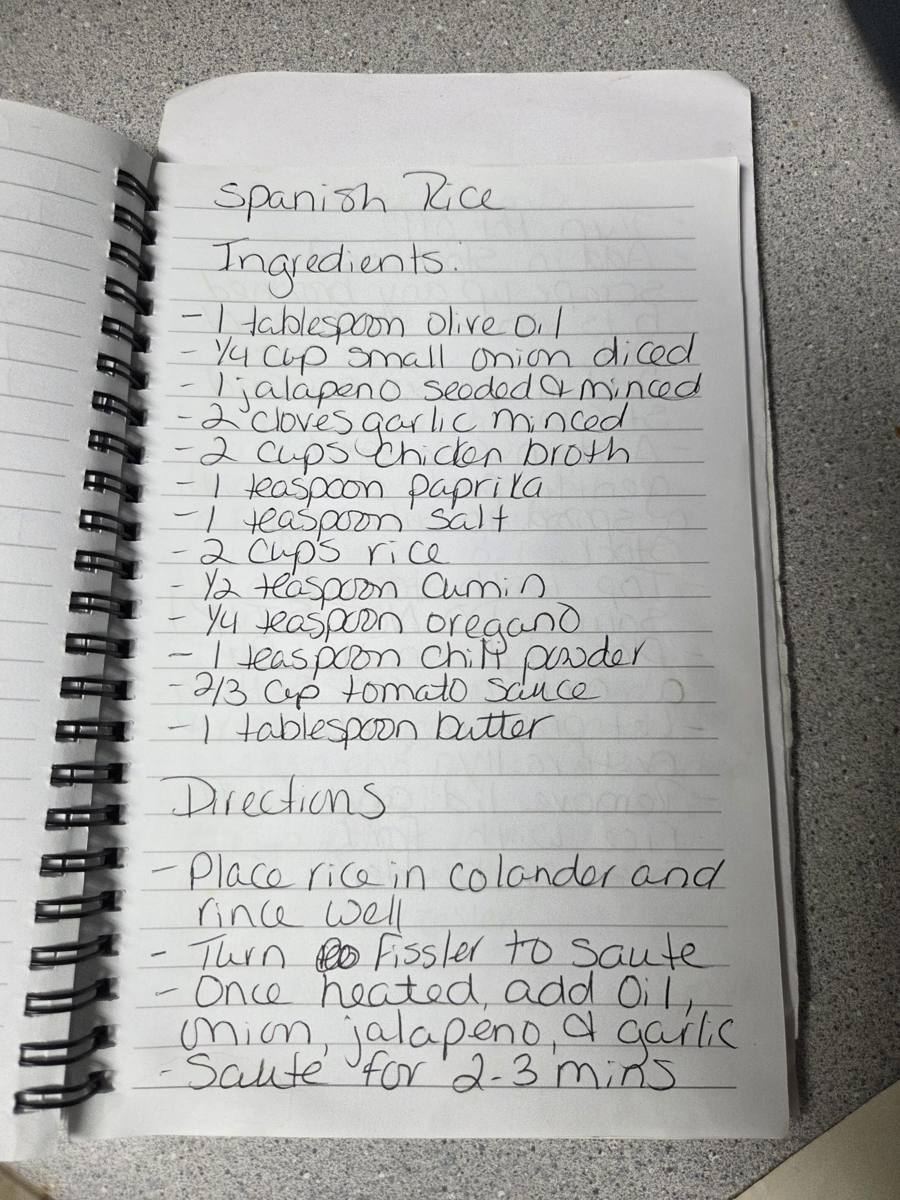 Spanish Rice
Ingredients:
- 1 tablespoon olive oil
- 1/4 cup small onion diced
- 1 jalapeno seeded & minced
- 2 cloves garlic minced
- 2 cups chicken broth
- 1 teaspoon paprika
- 1 teaspoon salt
- 2 cups rice
- 1/2 teaspoon cumin
- 1/4 teaspoon oregano
- 1 teaspoon chili powder
- 2/3 cup tomato sauce
- 1 tablespoon butter
Directions
- Place rice in colander and
rince well
- Turn Fissler to saute
- Once heated, add oil,
onion, jalapeno, & garlic
- Saute for 2-3 mins